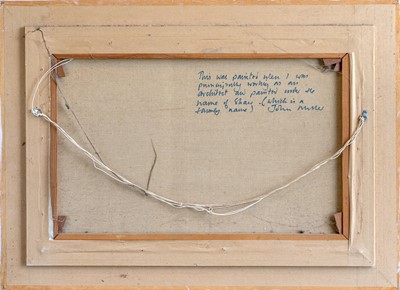 This was painted when I was
predominantly working as an
architect and painted under the
name of Shay - (which is a
family name) John Miller